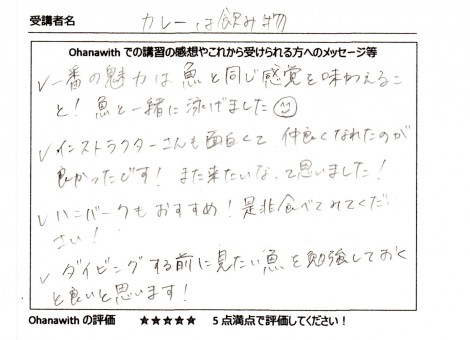 受講者名 カレーは飲み物
Ohanawith での講習の感想やこれから受けられる方へのメッセージ等
✓一番の魅力は魚と同じ感覚を味わえるこ
と！魚と一緒に泳げました☺
✓インストラクターさんも面白くて仲良くなれたのが
良かったです！また来たいな、て思いました！
✓ハニバークもおすすめ！是非食べてみてくだ
さい！
✓ダイビングする前に見たい魚を勉強しておく
と良いと思います！
Ohanawith の評価 ★★★★★ 5点満点で評価してください！